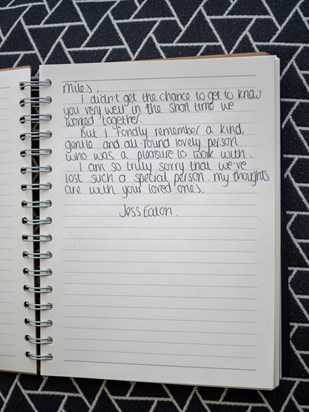 Miles,
I didn't get the chance to get to know
you very well in the short time we
worked together.
But I fondly remember a kind,
gentle and all-round lovely person
who was a pleasure to work with.
I am so truly sorry that we've
lost such a special person. my thoughts
are with your loved ones.
Jess Eaton.